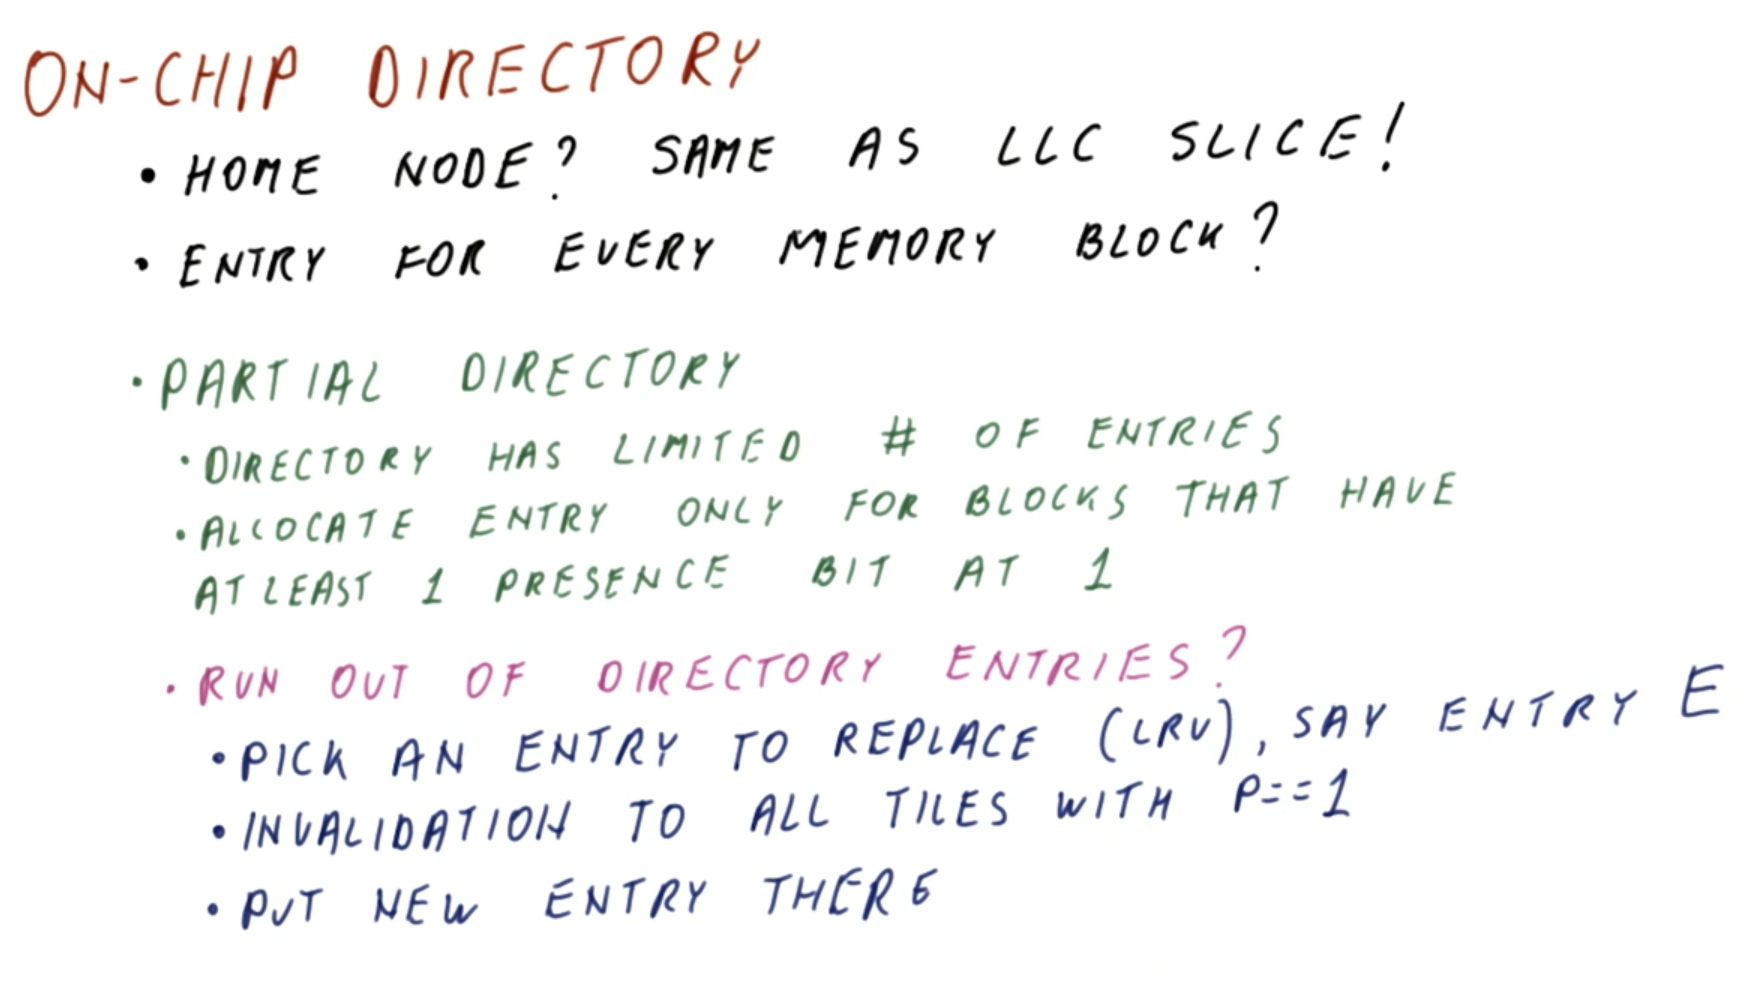 ON-CHIP DIRECTORY
• HOME NODE? SAME AS LLC SLICE!
• ENTRY FOR EVERY MEMORY BLOCK?
• PARTIAL DIRECTORY
• DIRECTORY HAS LIMITED # OF ENTRIES
• ALLOCATE ENTRY ONLY FOR BLOCKS THAT HAVE
AT LEAST 1 PRESENCE BIT AT 1
• RUN OUT OF DIRECTORY ENTRIES?
• PICK AN ENTRY TO REPLACE (LRU), SAY ENTRY E
• INVALIDATION TO ALL TILES WITH P==1
• PUT NEW ENTRY THERE